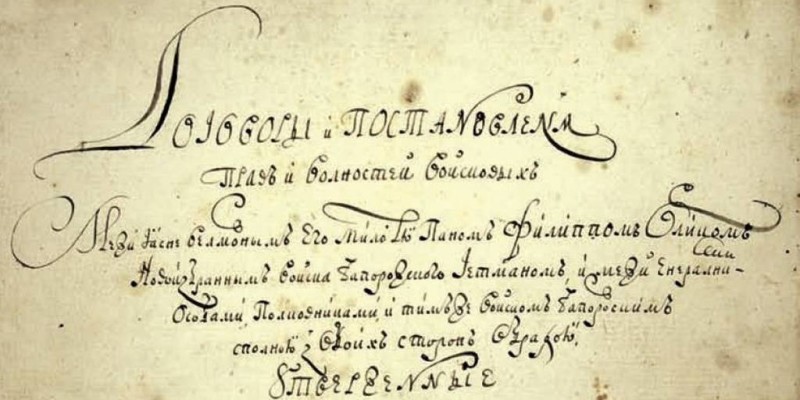 Договоры и Постановлениѧ
Правъ и волностей Войсковыхъ
Межи Ꙗсне велможнымъ Его Милостю Паномъ Филиппомъ Орликомъ
Новоизбраннымъ Войска Запорожского Гетманомъ, и межи Енералными
Особами Полковниками и тимъже Войскомъ Запорожскимъ
сполною з Обоихъ сторонъ Обрадою
Утвержденные